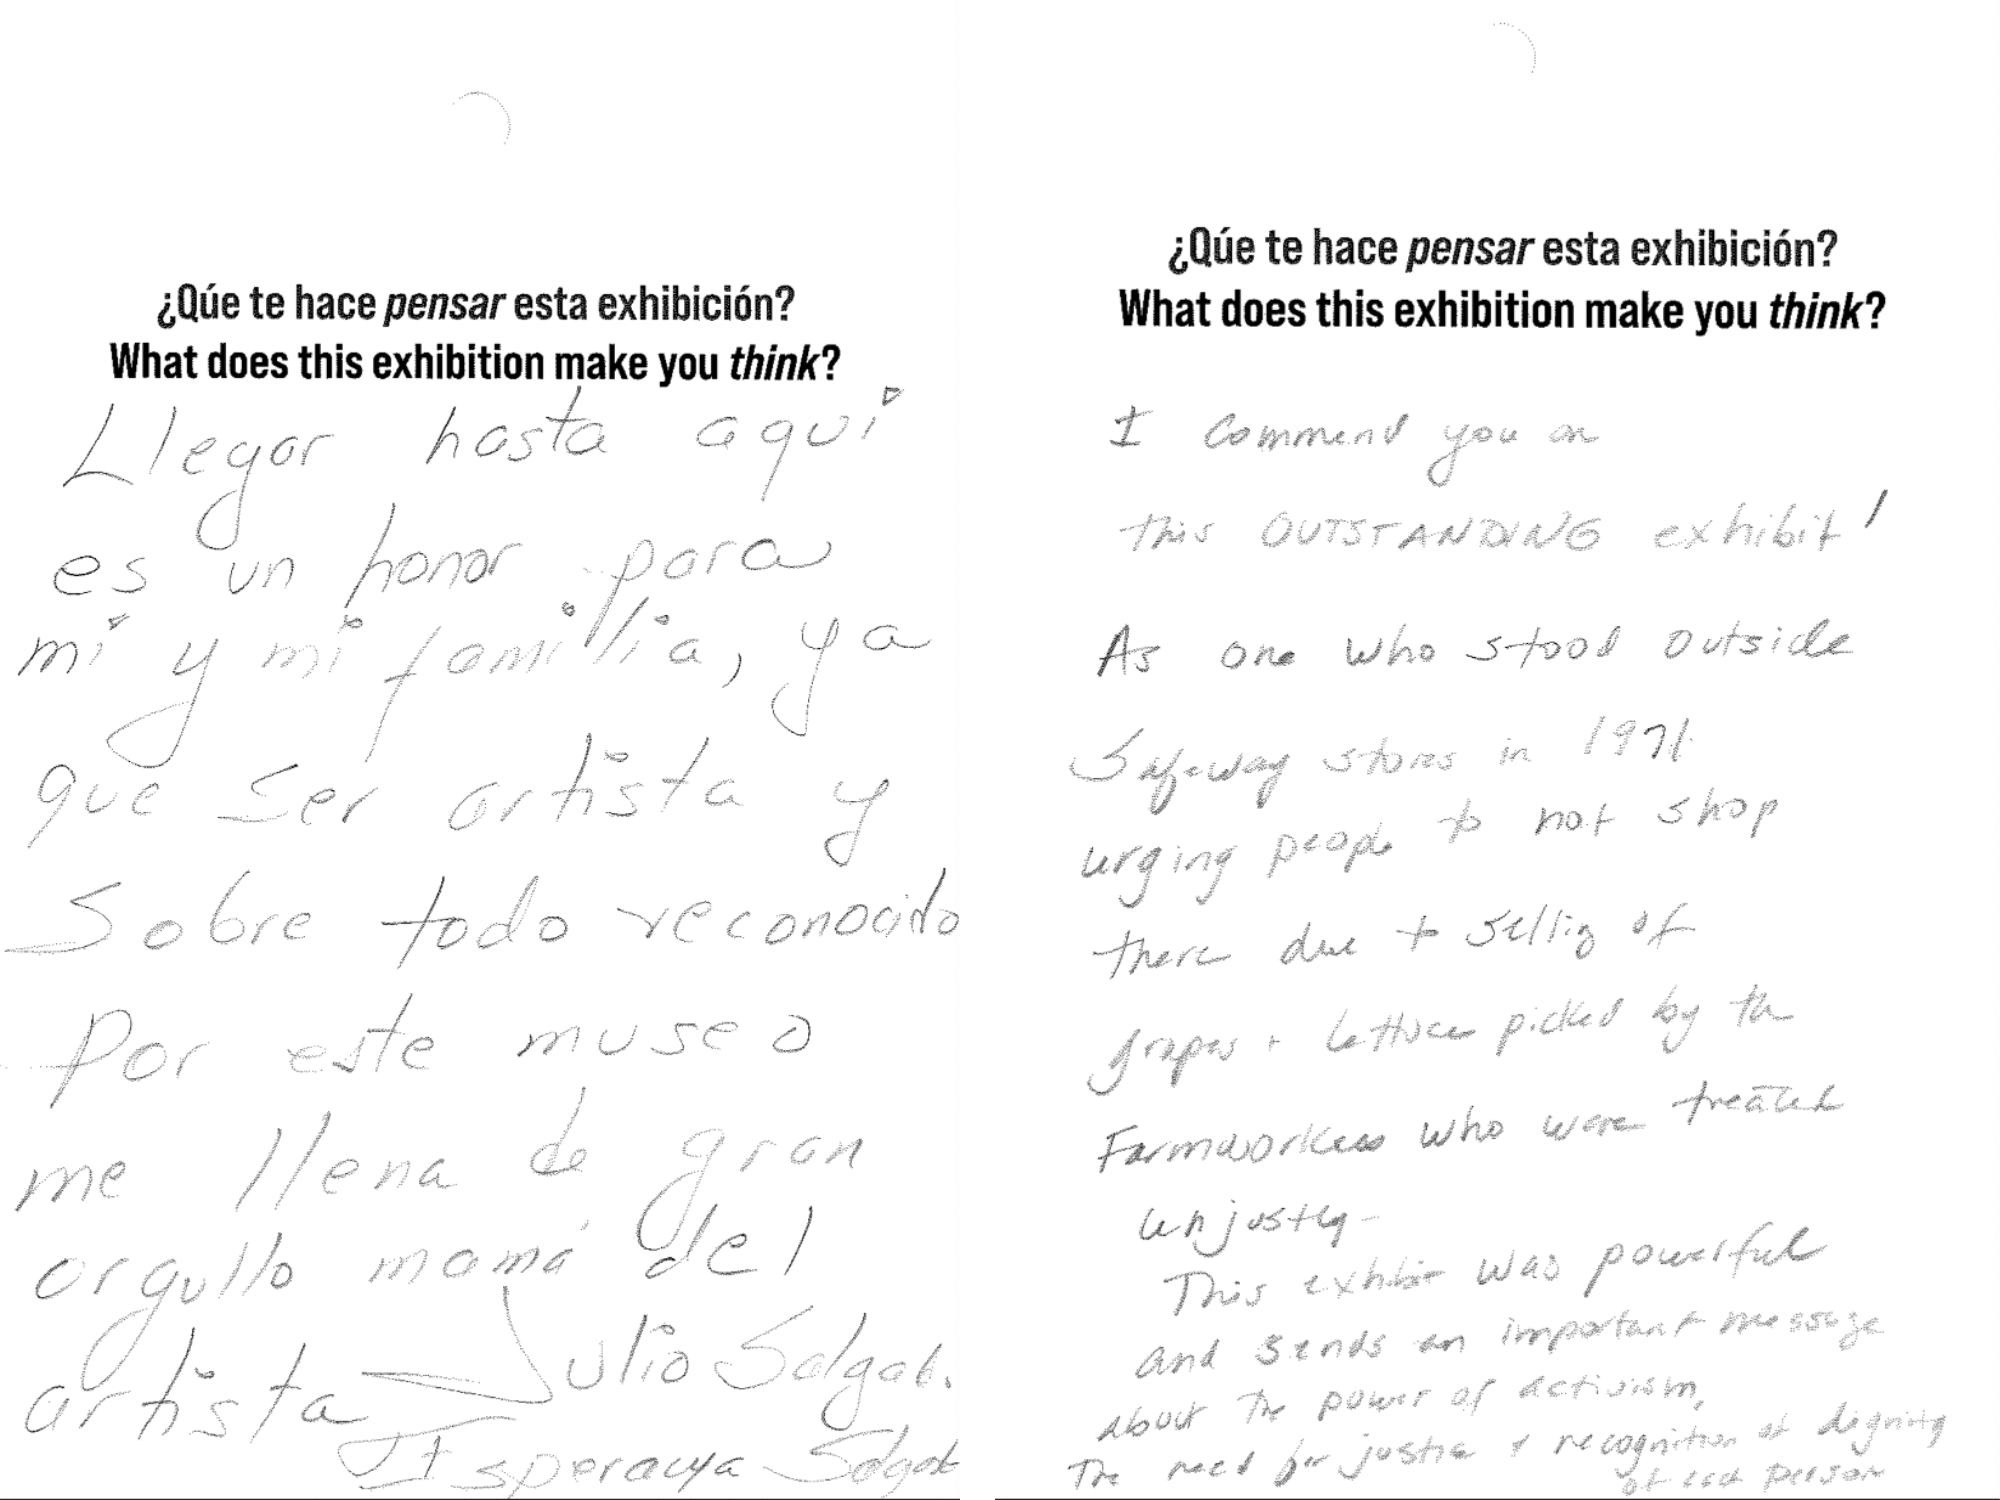 ¿Qúe te hace pensar esta exhibición?
What does this exhibition make you think?
Llegar hasta aquí
es un honor para
mí y mi familia, ya
que ser artista y
Sobre todo reconocido
Por este museo
me llena de gran
orgullo mamá del
artista Julio Salgad.
Salgad
¿Qúe te hace pensar esta exhibición?
What does this exhibition make you think?
I commend you on
this OUTSTANDING exhibit!
As one who stood outside
Safeway stores in 1971
urging people to not shop
there due to selling of
grapes + lettuce picked by the
Farmworkers who were treated
unjustly-
This exhibit was powerful
and sends an important message
about the power of activism,
The need for justice + recognition of dignity
of each person